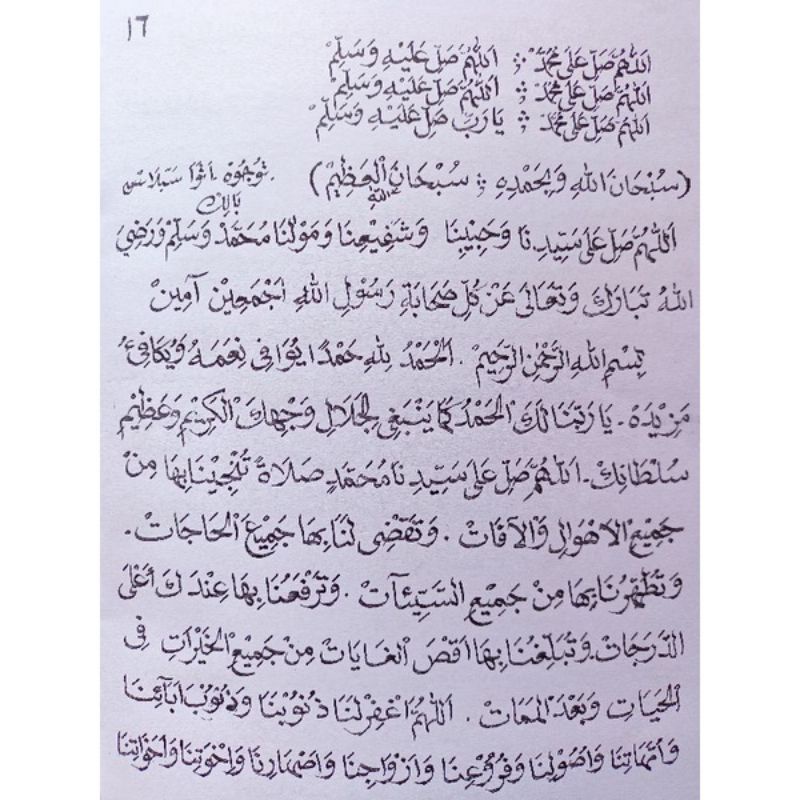 ١٦
اَللّٰهُمَّ صَلِّ عَلَى مُحَمَّدْ ؛ اَللّٰهُمَّ صَلِّ عَلَيْهِ وَسَلِّمْ
اَللّٰهُمَّ صَلِّ عَلَى مُحَمَّدْ ؛ اَللّٰهُمَّ صَلِّ عَلَيْهِ وَسَلِّمْ
اَللّٰهُمَّ صَلِّ عَلَى مُحَمَّدْ ؛ يَا رَبِّ صَلِّ عَلَيْهِ وَسَلِّمْ
(سُبْحَانَ اللهِ وَبِحَمْدِهِ ؛ سُبْحَانَ اللهِ الْعَظِيْمْ) .توجوه. اتوا سبلاس
بالك
اَللّٰهُمَّ صَلِّ عَلَى سَيِّدِنَا وَحَبِيْبِنَا وَشَفِيْعِنَا وَمَوْلٰنَا مُحَمَّدْ وَسَلِّمْ وَرَضِيَ
اللهُ تَبَارَكَ وَتَعَالَى عَنْ كُلِّ صَحَابَةِ رَسُوْلِ اللهِ اَجْمَعِيْنْ آمِيْنْ
بِسْمِ اللهِ الرَّحْمٰنِ الرَّحِيْمْ . اَلْحَمْدُ لِلهِ حَمْدًا يُوَافِى نِعَمَهُ وَيُكَافِئُ
مَزِيْدَهْ . يَا رَبَّنَا لَكَ الْحَمْدُ كَمَا يَنْبَغِى لِجَلَالِ وَجْهِكَ الْكَرِيْمِ وَعَظِيْمِ
سُلْطَانِكْ . اَللّٰهُمَّ صَلِّ عَلَى سَيِّدِنَا مُحَمَّدٍ صَلَاةً تُنْجِيْنَا بِهَا مِنْ
جَمِيْعِ الْاَهْوَالِ وَالْآفَاتْ . وَتَقْضِى لَنَا بِهَا جَمِيْعَ الْحَاجَاتْ .
وَتُطَهِّرُنَا بِهَا مِنْ جَمِيْعِ السَّيِّئَآتْ . وَتَرْفَعُنَا بِهَا عِنْدَكَ أَعْلَى
الدَّرَجَاتْ . وَتُبَلِّغُنَا بِهَا اَقْصَ الْغَايَاتْ مِنْ جَمِيْعِ الْخَيْرَاتِ فِى
الْحَيَاتِ وَبَعْدَ الْمَمَاتْ . اَللّٰهُمَّ اغْفِرْ لَنَا ذُنُوْبَنَا وَذُنُوْبَ اٰبَآئِنَا
وَاُمَّهَاتِنَا وَاُصُوْلِنَا وَفُرُوْعِنَا وَاَزْوَاجِنَا وَاَصْهَارِنَا وَاِخْوَتِنَا وَاَخَوَاتِنَا